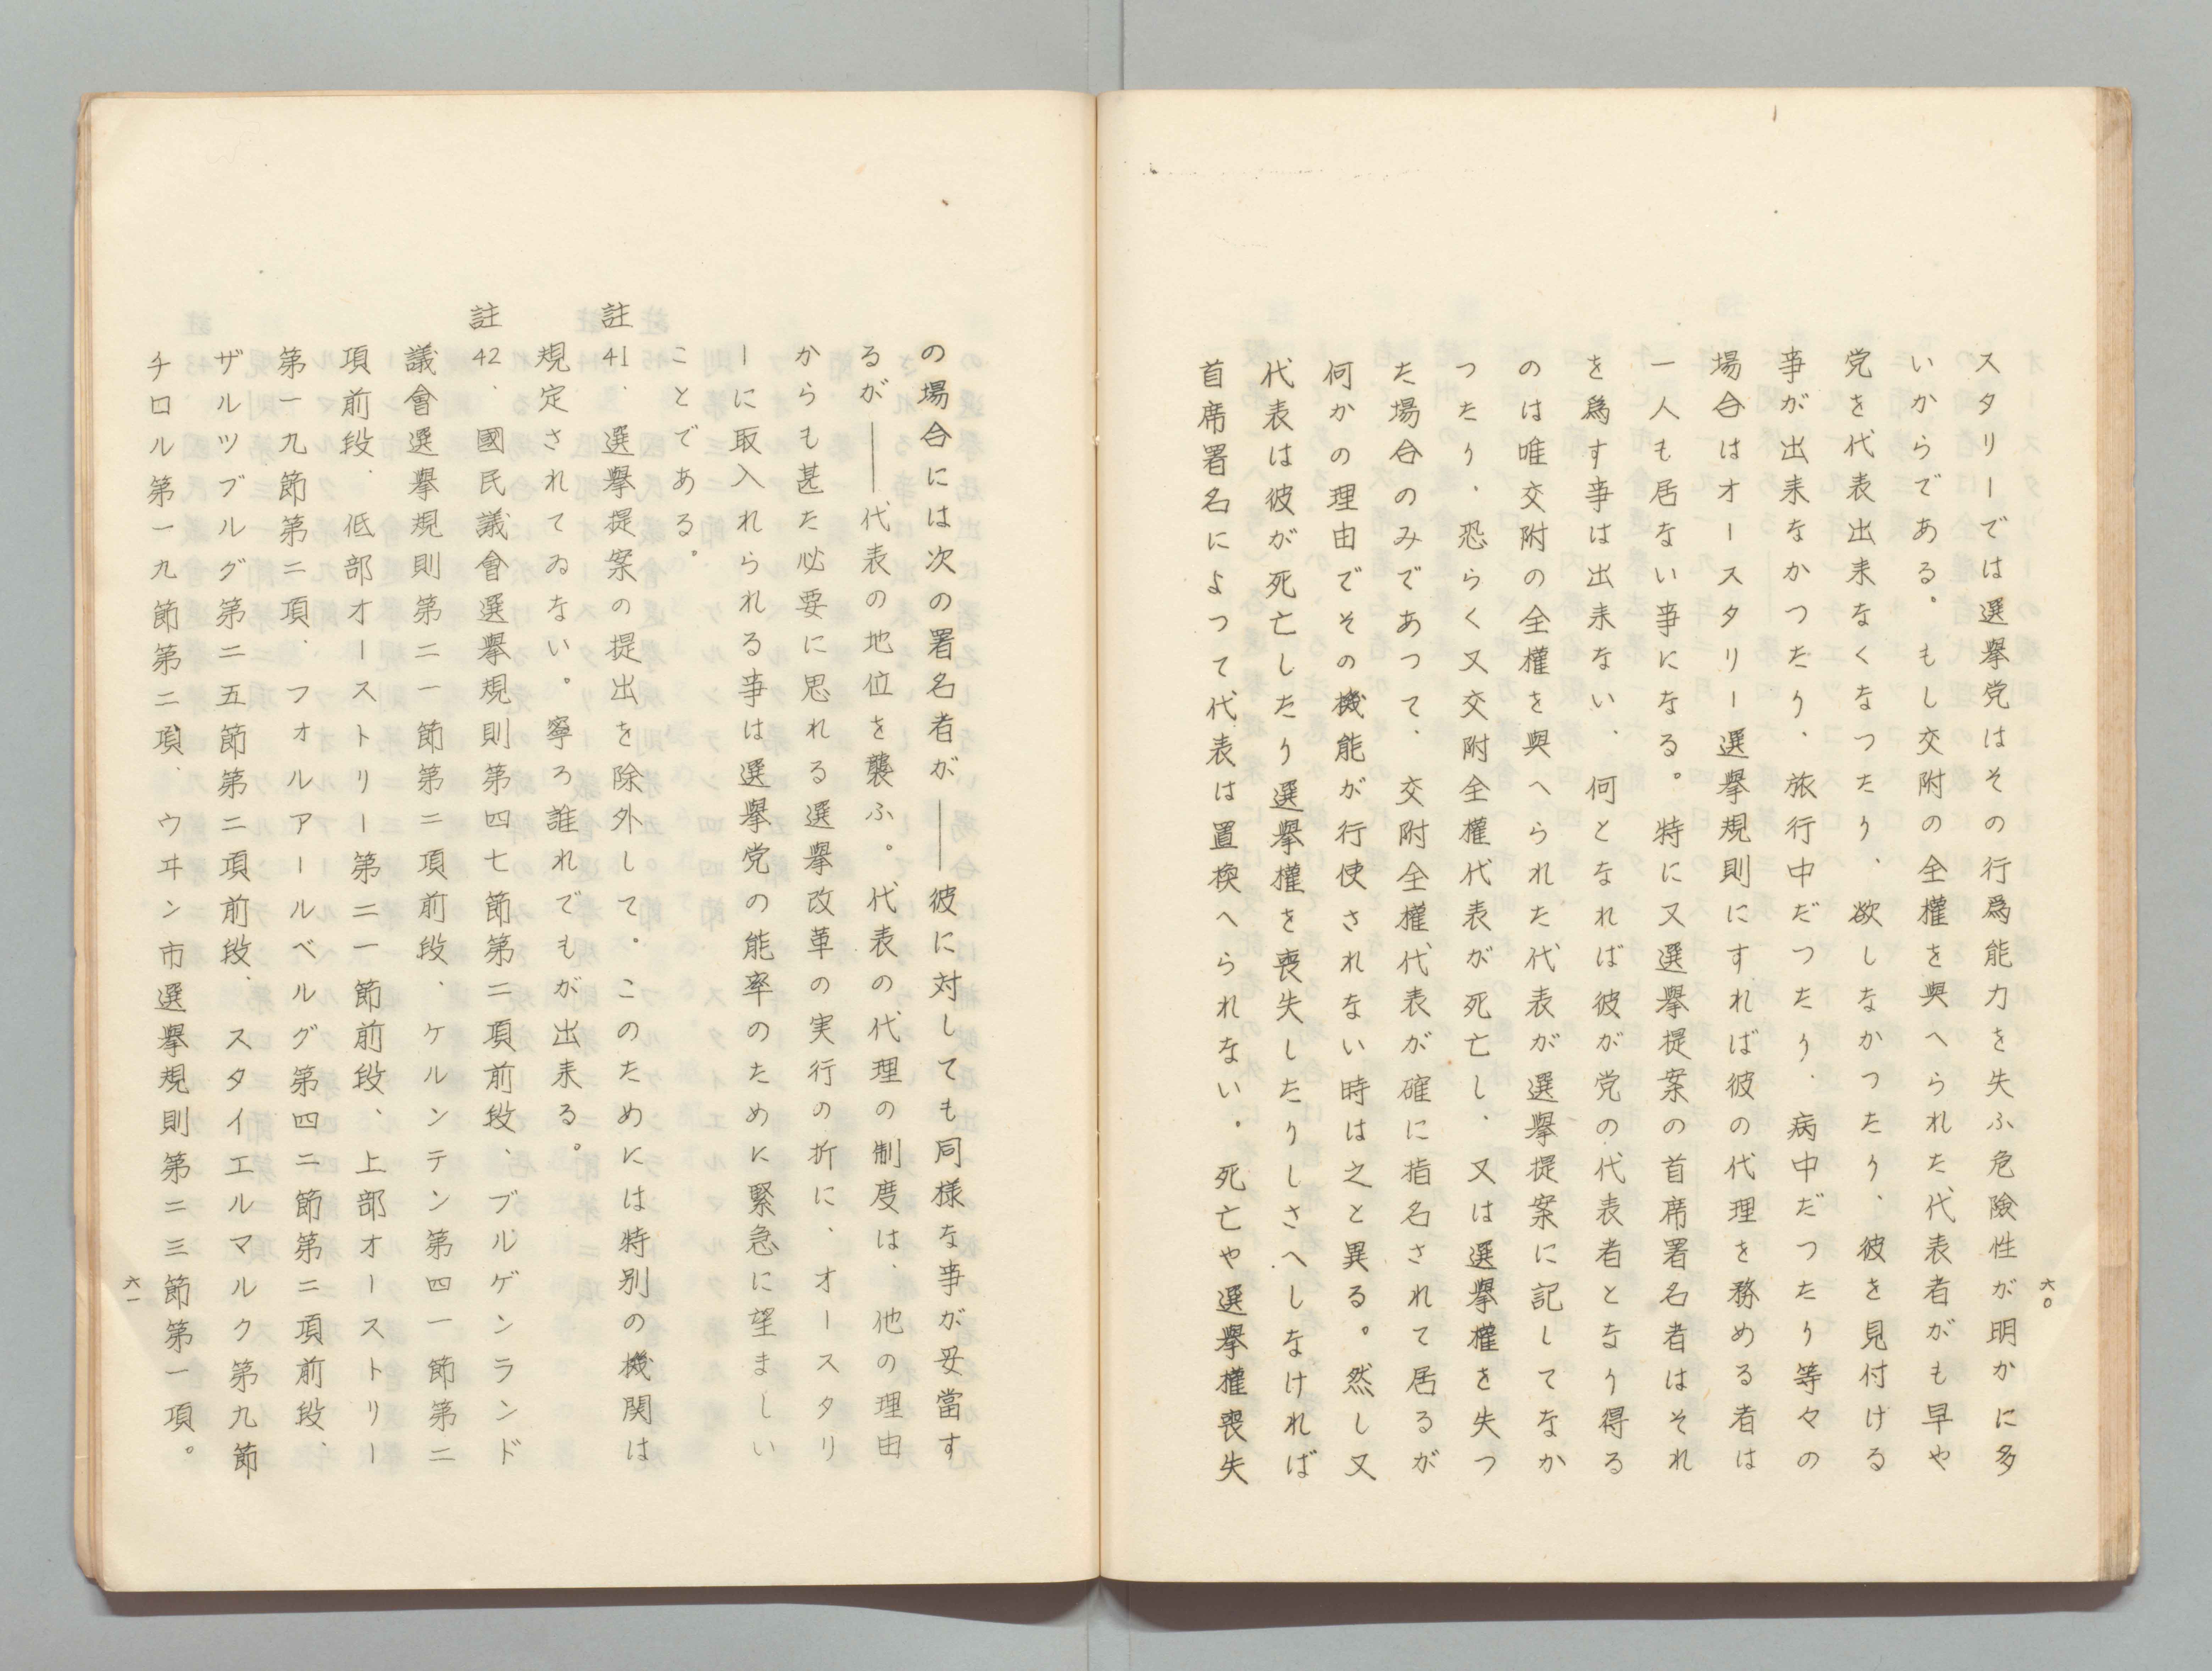 スタリーでは選擧党はその行爲能力を失ふ危險性が明かに多
いからである。もし交附の全權を與へられた代表者がも早や
党を代表出来なくなつたり、欲しなかつたり、彼を見付ける
事が出来なかつたり、旅行中だつたり、病中だつたり等々の
場合はオースタリー選擧規則にすれば彼の代理を務める者は
一人も居ない事になる。特に又選擧提案の首席署名者はそれ
を爲す事は出来ない、何となれば彼が党の代表者となり得る
のは唯交附の全權を與へられた代表が選擧提案に記してなか
つたり、恐らく又交附全權代表が死亡し、又は選擧權を失つ
た場合のみであつて、交附全權代表が確に指名されて居るが
何かの理由でその機能が行使されない時は之と異る。然し又
代表は彼が死亡したり選擧權を喪失したりしさへしなければ
首席署名によつて代表は置換へられない。死亡や選擧權喪失
六〇
の場合には次の署名者が――彼に対しても同様な事が妥當す
るが――代表の地位を襲ふ。代表の代理の制度は、他の理由
からも甚た必要に思れる選擧改革の実行の折に、オースタリ
ーに取入れられる事は選擧党の能率のために緊急に望ましい
ことである。
註41、選擧提案の提出を除外して。このためには特別の機関は
規定されてゐない。寧ろ誰れでもが出来る。
註42、國民議會選擧規則第四七節第二項前段、ブルゲンランド
議會選擧規則第二一節第二項前段、ケルンテン第四一節第二
項前段、低部オーストリー第二一節前段、上部オーストリー
第一九節第二項、フォルアールベルグ第四二節第二項前段、
ザルツブルグ第二五節第二項前段、スタイエルマルク第九節
チロル第一九節第二項、ウヰン市選擧規則第二三節第一項。
六一